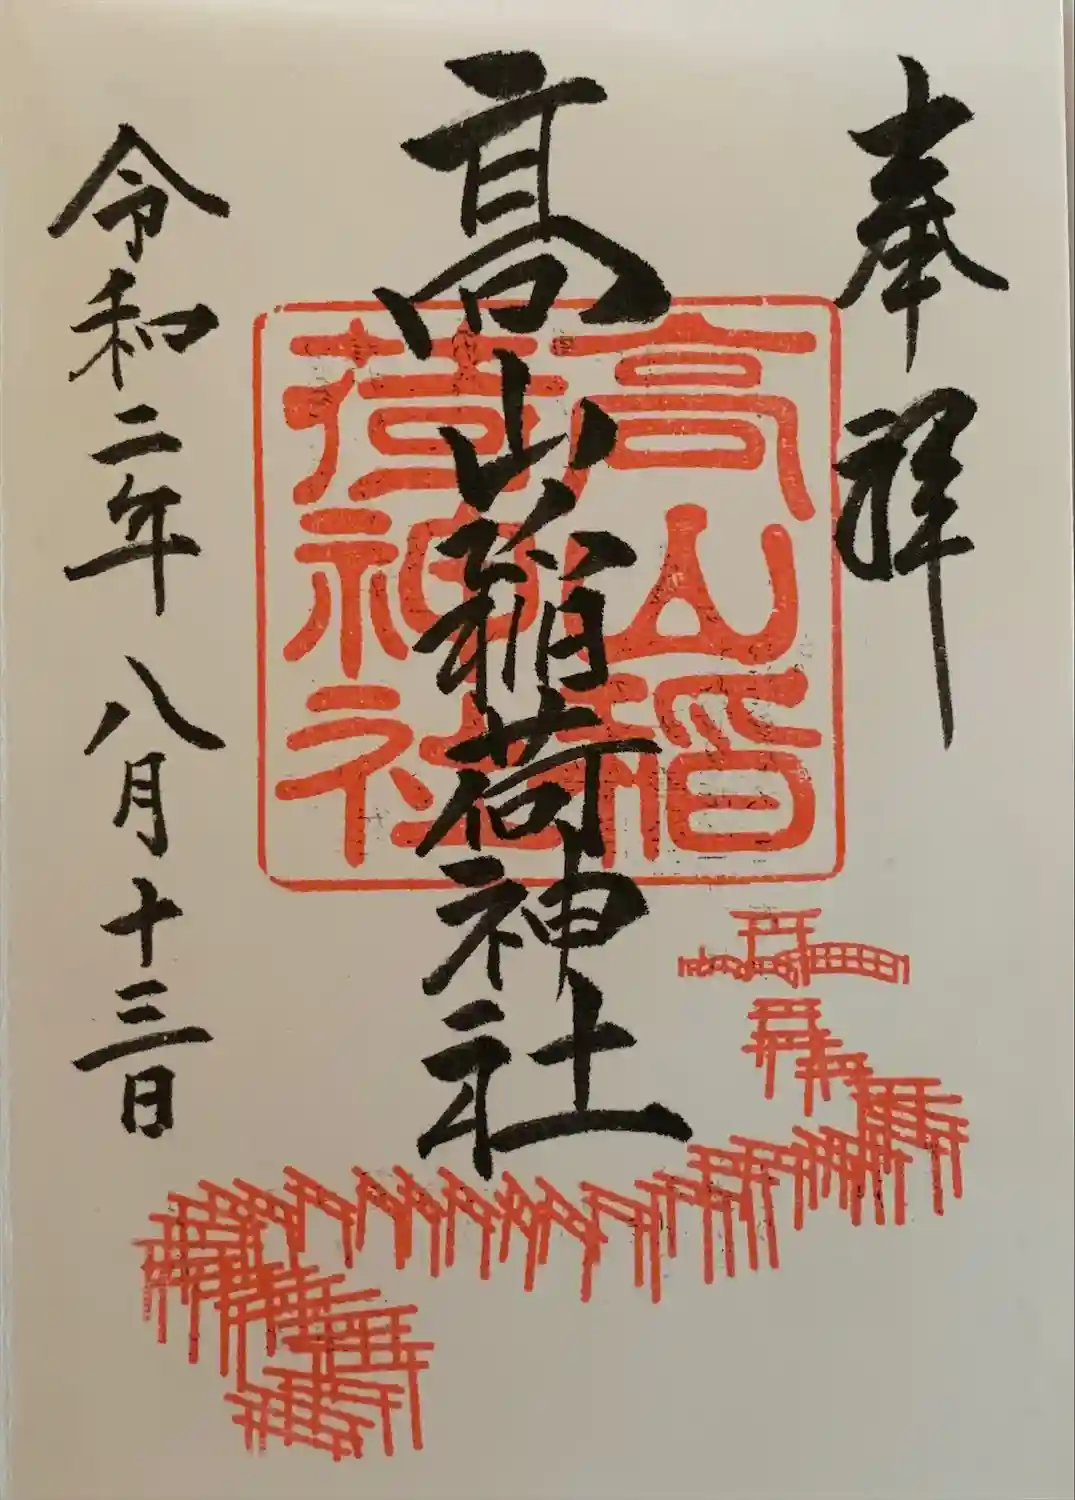 奉拝
髙山稲荷神社
高山稲
荷神社
令和二年八月十三日